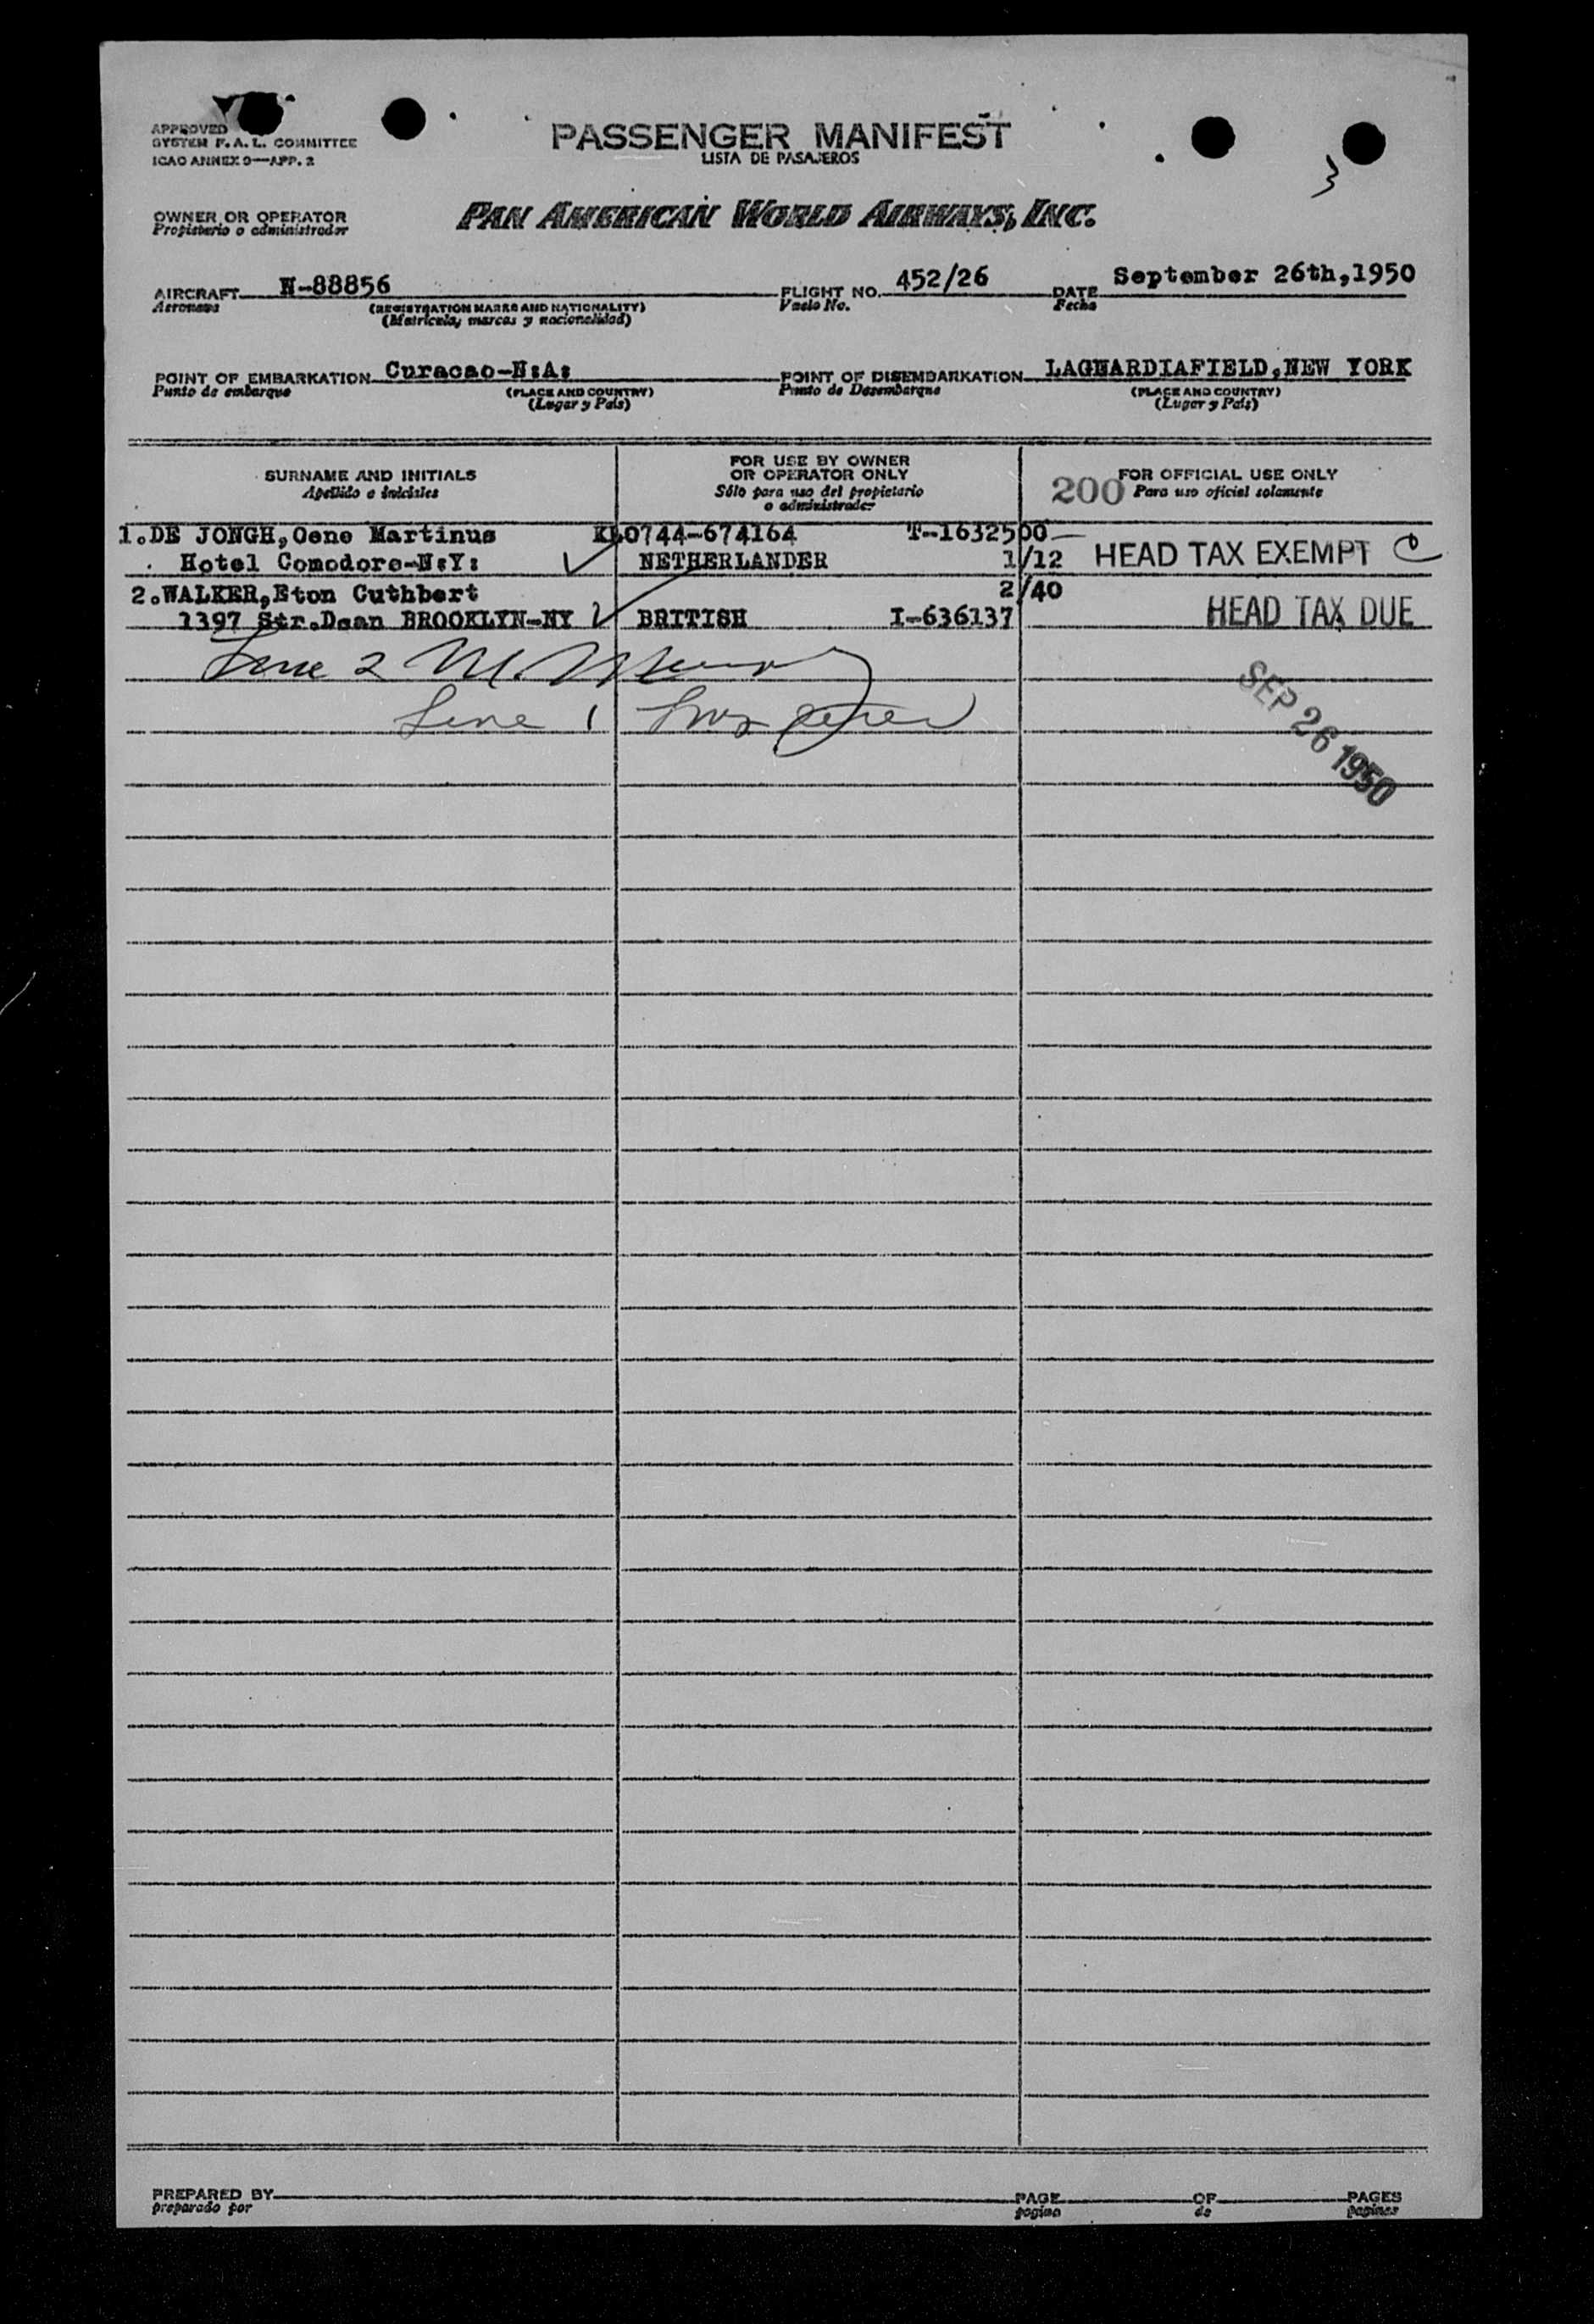 APPROVED
SYSTEM F. A. L. COMMITTEE
ICAO ANNEX 9—APP. 2
PASSENGER MANIFEST
LISTA DE PASAJEROS
3
OWNER OR OPERATOR
Propietario o administrador
PAN AMERICAN WORLD AIRWAYS, INC.
AIRCRAFT N-88856 FLIGHT NO. 452/26 DATE September 26th,1950
Aeronave (REGISTRATION MARKS AND NATIONALITY) Vuelo No. Fecha
(Matricula, marcas y nacionalidad)
POINT OF EMBARKATION Curacao-N:A: POINT OF DISEMBARKATION LAGUARDIAFIELD,NEW YORK
Punto de embarque (PLACE AND COUNTRY) Punto de Desembarque (PLACE AND COUNTRY)
(Lugar y País) (Lugar y País)
SURNAME AND INITIALS
Apellido e iniciales
FOR USE BY OWNER
OR OPERATOR ONLY
Sólo para uso del propietario
o administrador
200 FOR OFFICIAL USE ONLY
Para uso oficial solamente
1.DE JONGH,Oene Martinus KL0744-674164 T-1632500
Hotel Comodore-N:Y: NETHERLANDER 1/12 HEAD TAX EXEMPT C
2.WALKER,Eton Cuthbert 2/40
1397 Str.Dean BROOKLYN-NY BRITISH I-636137 HEAD TAX DUE
Line 2 M.
Line 1
SEP 26 1950
PREPARED BY PAGE OF PAGES
preparado por pagina de paginas